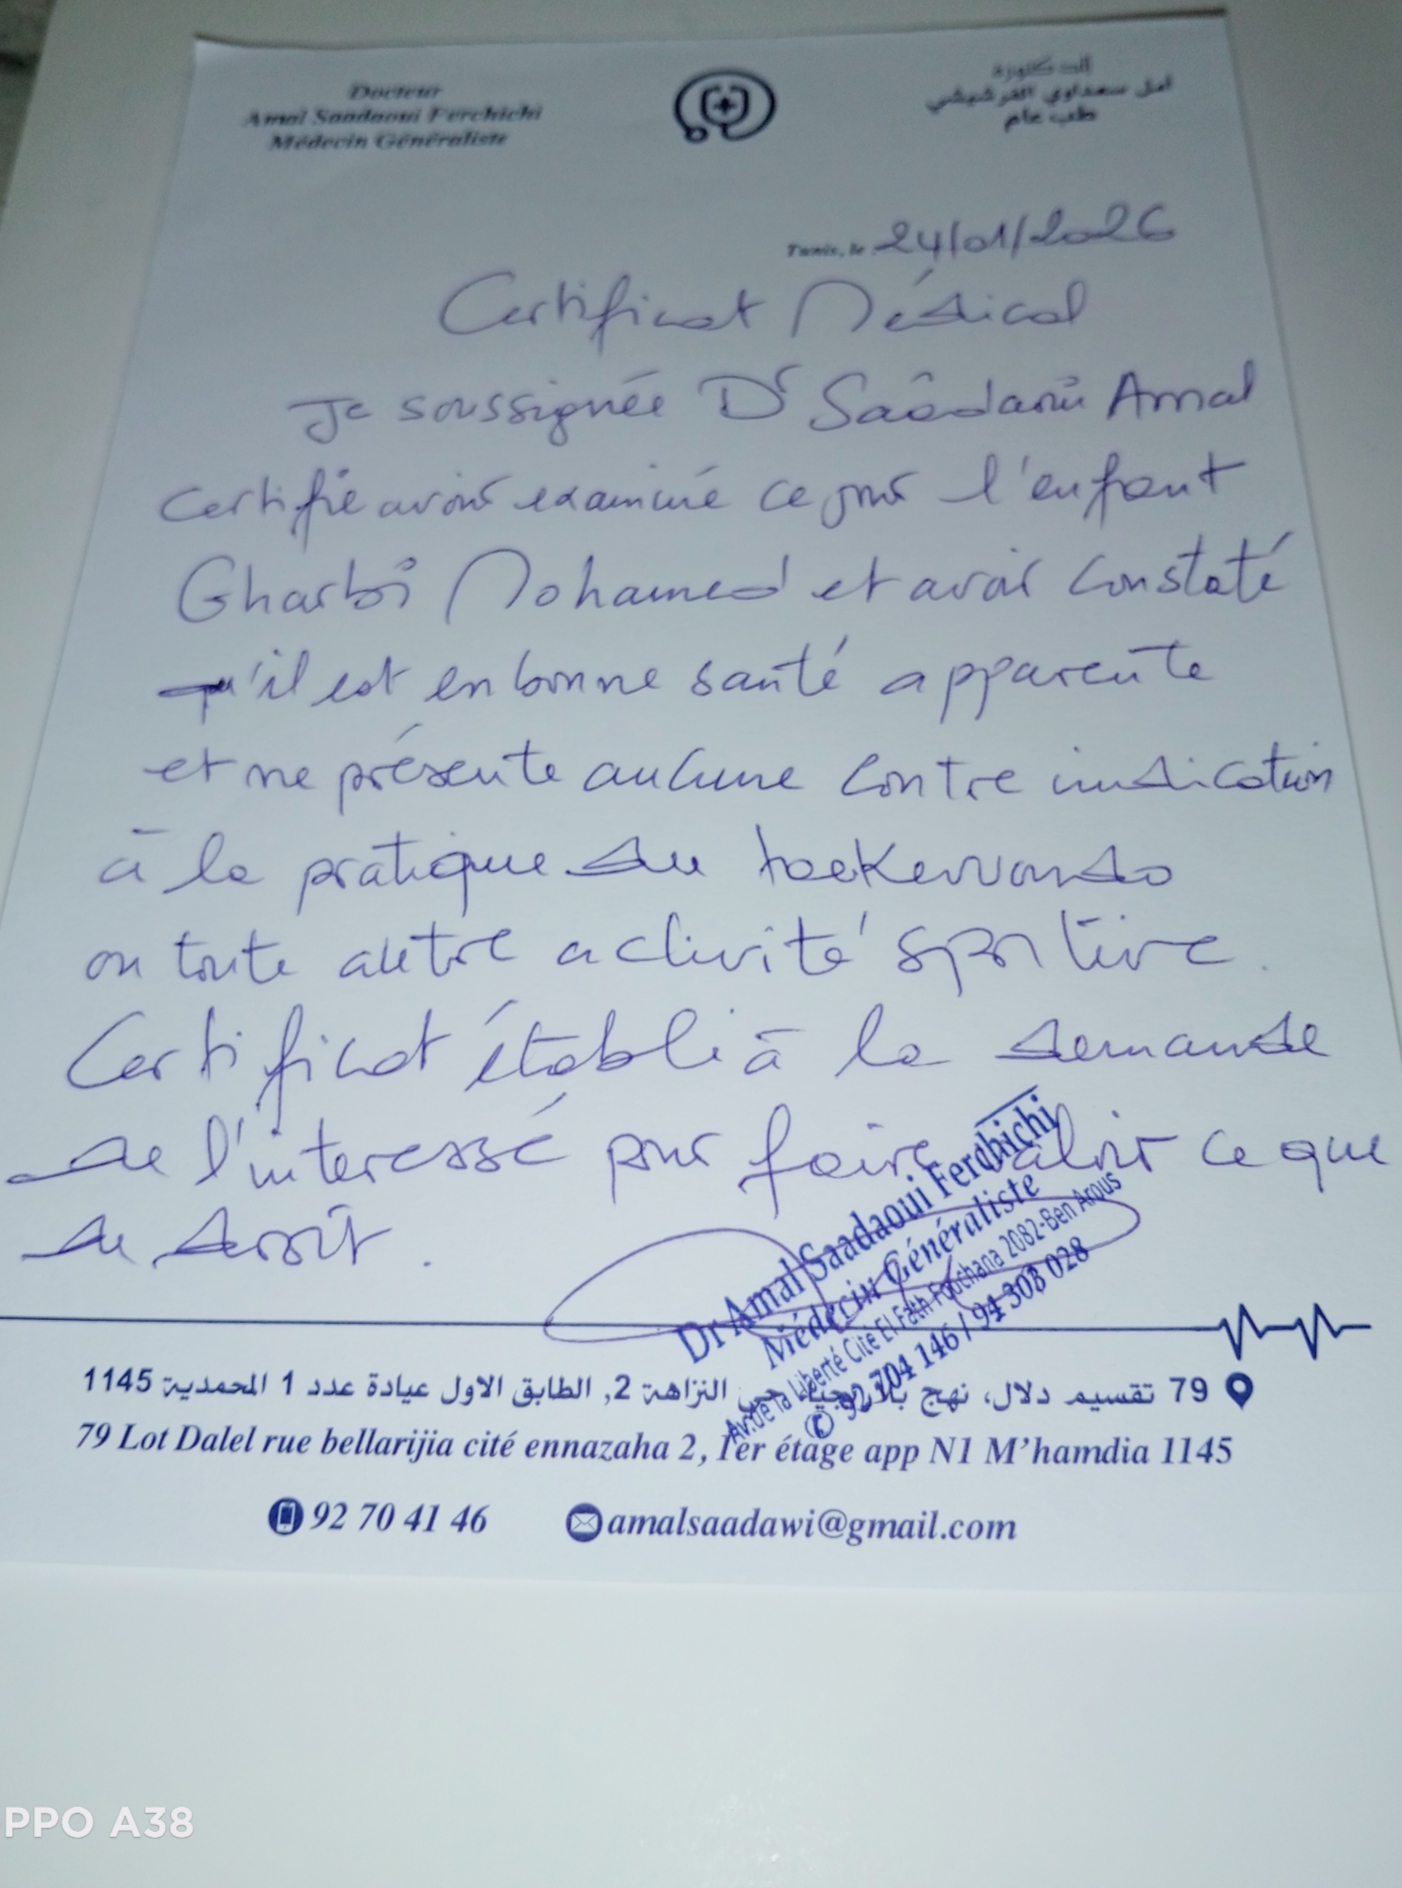 Docteur
Amal Saadaoui Ferchichi
Médecin Généraliste
الدكتورة
امل سعداوي الفرشيشي
طب عام
Tunis, le 24/01/2026
Certificat Médical
Je soussignée Dr Saâdaoui Amal
certifie avoir examiné ce jour l'enfant
Gharbi Mohamed et avoir constaté
qu'il est en bonne santé apparente
et ne présente aucune contre indication
à la pratique du taekewondo
ou toute autre activité sportive.
Certificat établi à la demande
de l'interessé pour faire valoir ce que
de droit.
Dr Amal Saadaoui Ferchichi
Médecin Généraliste
Av. de la Liberté Cité El Fath Fouchana 2082-Ben Arous
92 704 146 / 94 303 028
79 تقسيم دلال، نهج حي النزاهة 2, الطابق الاول عيادة عدد 1 المحمدية 1145
79 Lot Dalel rue bellarijia cité ennazaha 2, 1er étage app N1 M'hamdia 1145
92 70 41 46 amalsaadawi@gmail.com
PPO A38